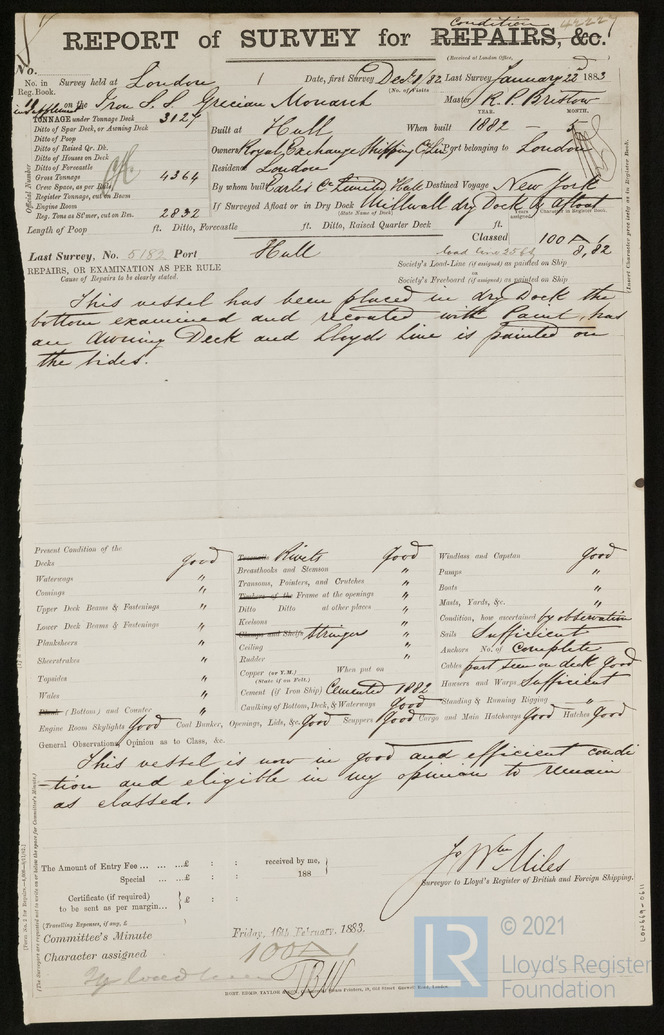 Condition
REPORT of SURVEY for REPAIRS, &c.
(Received at London Office,
No.
No. in Reg. Book. Survey held at London Date, first Survey Dec 8, 82 Last Survey January 23rd 1883
(No. of Visits
on the Iron S.S. Grecian Monarch Master R. P. Bristow
TONNAGE under Tonnage Deck 3127
YEAR. MONTH.
Ditto of Spar Deck, or Awning Deck
Built at Hull When built 1882 - 5
Ditto of Poop
Ditto of Raised Qr. Dk.
Owners Royal Exchange Shipping Co Lim Port belonging to London
Ditto of Houses on Deck
Ditto of Forecastle
Residence London
Gross Tonnage 4364
Crew Space, as per Bill
By whom built Earles Co Limited Hull Destined Voyage New York
Register Tonnage, cut on Beam
Engine Room
If Surveyed Afloat or in Dry Dock Millwall dry Dock & afloat
(State Name of Dock)
Reg. Tons as St'mer, cut on Bea. 2832
Official Number
Years assigned Character in Register Book.
Length of Poop ft. Ditto, Forecastle ft. Ditto, Raised Quarter Deck ft.
Classed 100 A 1
8,82
Last Survey, No. 5182 Port Hull
Society's Load-Line (if assigned) as painted on Ship
or
REPAIRS, OR EXAMINATION AS PER RULE
Society's Freeboard (if assigned) as painted on Ship
Cause of Repairs to be clearly stated.
This vessel has been placed in dry Dock the
bottom examined and recoated with Paint, has
an Awning Deck and Lloyds Line is painted on
the sides.
Present Condition of the
Decks good
Waterways "
Comings "
Upper Deck Beams & Fastenings "
Lower Deck Beams & Fastenings "
Planksheers "
Sheerstrakes "
Topsides "
Wales "
Plank (Bottom) and Counter "
Treenails Rivets good
Breasthooks and Stemson "
Transoms, Pointers, and Crutches "
Timbers of the Frame at the openings "
Ditto Ditto at other places "
Keelsons "
Clamps and Shelfs Stringers "
Ceiling "
Rudder "
Copper (or Y.M.) When put on
(State if on Felt.)
Cement (if Iron Ship) Cemented 1882
Caulking of Bottom, Deck, & Waterways Good
Windlass and Capstan good
Pumps "
Boats "
Masts, Yards, &c. "
Condition, how ascertained by observation
Sails Sufficient
Anchors No. of Complete
Cables part seen on deck Good
Hawsers and Warps Sufficient
Standing & Running Rigging "
Engine Room Skylights Good Coal Bunker, Openings, Lids, &c. Good Scuppers Good Cargo and Main Hatchways Good Hatches Good
General Observations, Opinion as to Class, &c.
This vessel is now in good and efficient condi
-tion and eligible in my opinion to remain
as classed.
The Amount of Entry Fee ... ... ...£ : : received by me,
Special ... ...£ : : 188
Certificate (if required) to be sent as per margin... £ : :
Jo Wm Miles
Surveyor to Lloyd's Register of British and Foreign Shipping.
(Travelling Expenses, if any, £ )
Committee's Minute Friday, 16th February, 1883.
Character assigned 100 A 1
LON669-0611
LR
© 2021
Lloyd's Register
Foundation